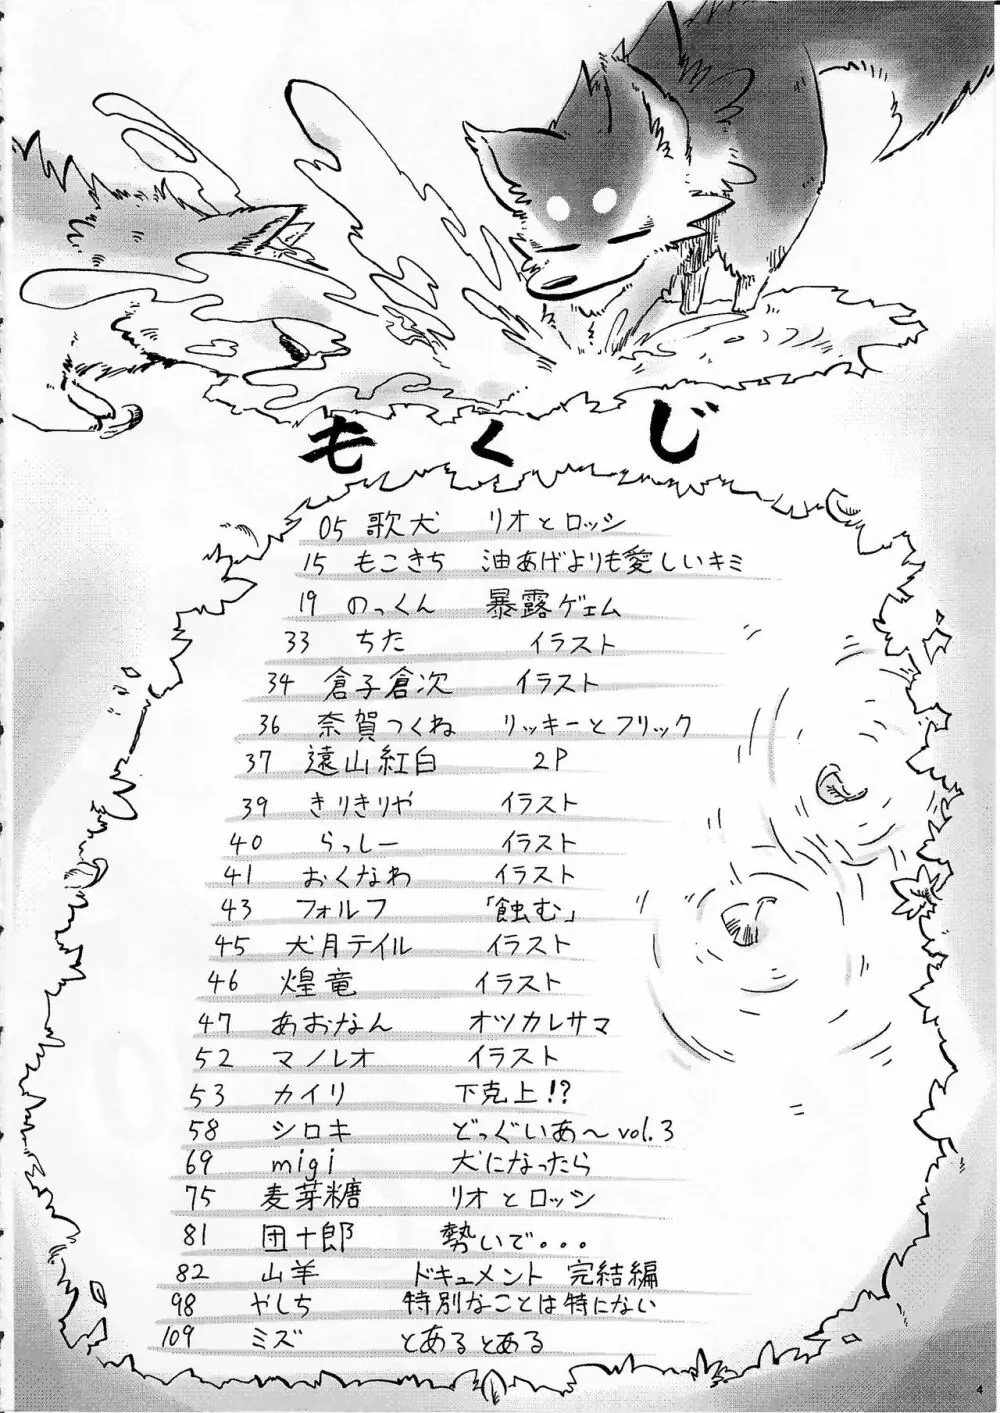 もくじ
05 歌犬 リオとロッシ
15 もこきち 油あげよりも愛しいキミ
19 のっくん 暴露ゲェム
33 ちた イラスト
34 倉子倉次 イラスト
36 奈賀つくね リッキーとフリック
37 遠山紅白 2P
39 きりきりや イラスト
40 らっしー イラスト
41 おくなわ イラスト
43 フォルフ 「蝕む」
45 犬月テイル イラスト
46 煌竜 イラスト
47 あおなん オツカレサマ
52 マノレオ イラスト
53 カイリ 下克上!?
58 シロキ どっぐいあ〜vol.3
69 migi 犬になったら
75 麦芽糖 リオとロッシ
81 団十郎 勢いで...
82 山羊 ドキュメント 完結編
98 やしち 特別なことは特にない
109 ミズ とあるとある
4